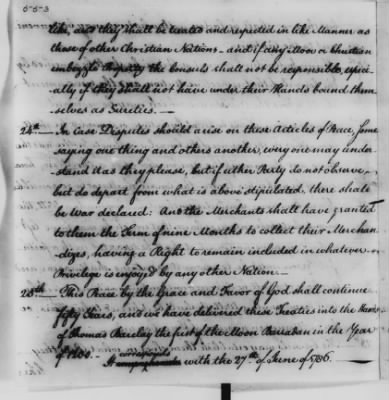 like, and they shall be treated and respected in like Manner as
those of other Christian Nations — and if any Moor or Christian
embezzle Property the Consuls shall not be responsible, especi-
ally if they shall not have under their Hands bound them
selves as Sureties. —
24th — In Case Disputes should arise on these Articles of Peace, some
saying one thing and others another, every one may under
stand it as they please, but if either Party do not observe,
but do depart from what is above stipulated, there shall
be War declared: And the Merchants shall have granted
to them the Term of nine Months to collect their Merchan
dizes, having a Right to remain included in whatever
Privilege is enjoy'd by any other Nation —
25th — This Peace by the Grace and Favor of God shall continue
fifty Years, and we have delivered these Treaties into the Hands
of Thomas Barclay the first of the Moon Ramadan in the Year
of 1200. —
It corresponds with the 27th of June of 1786. —